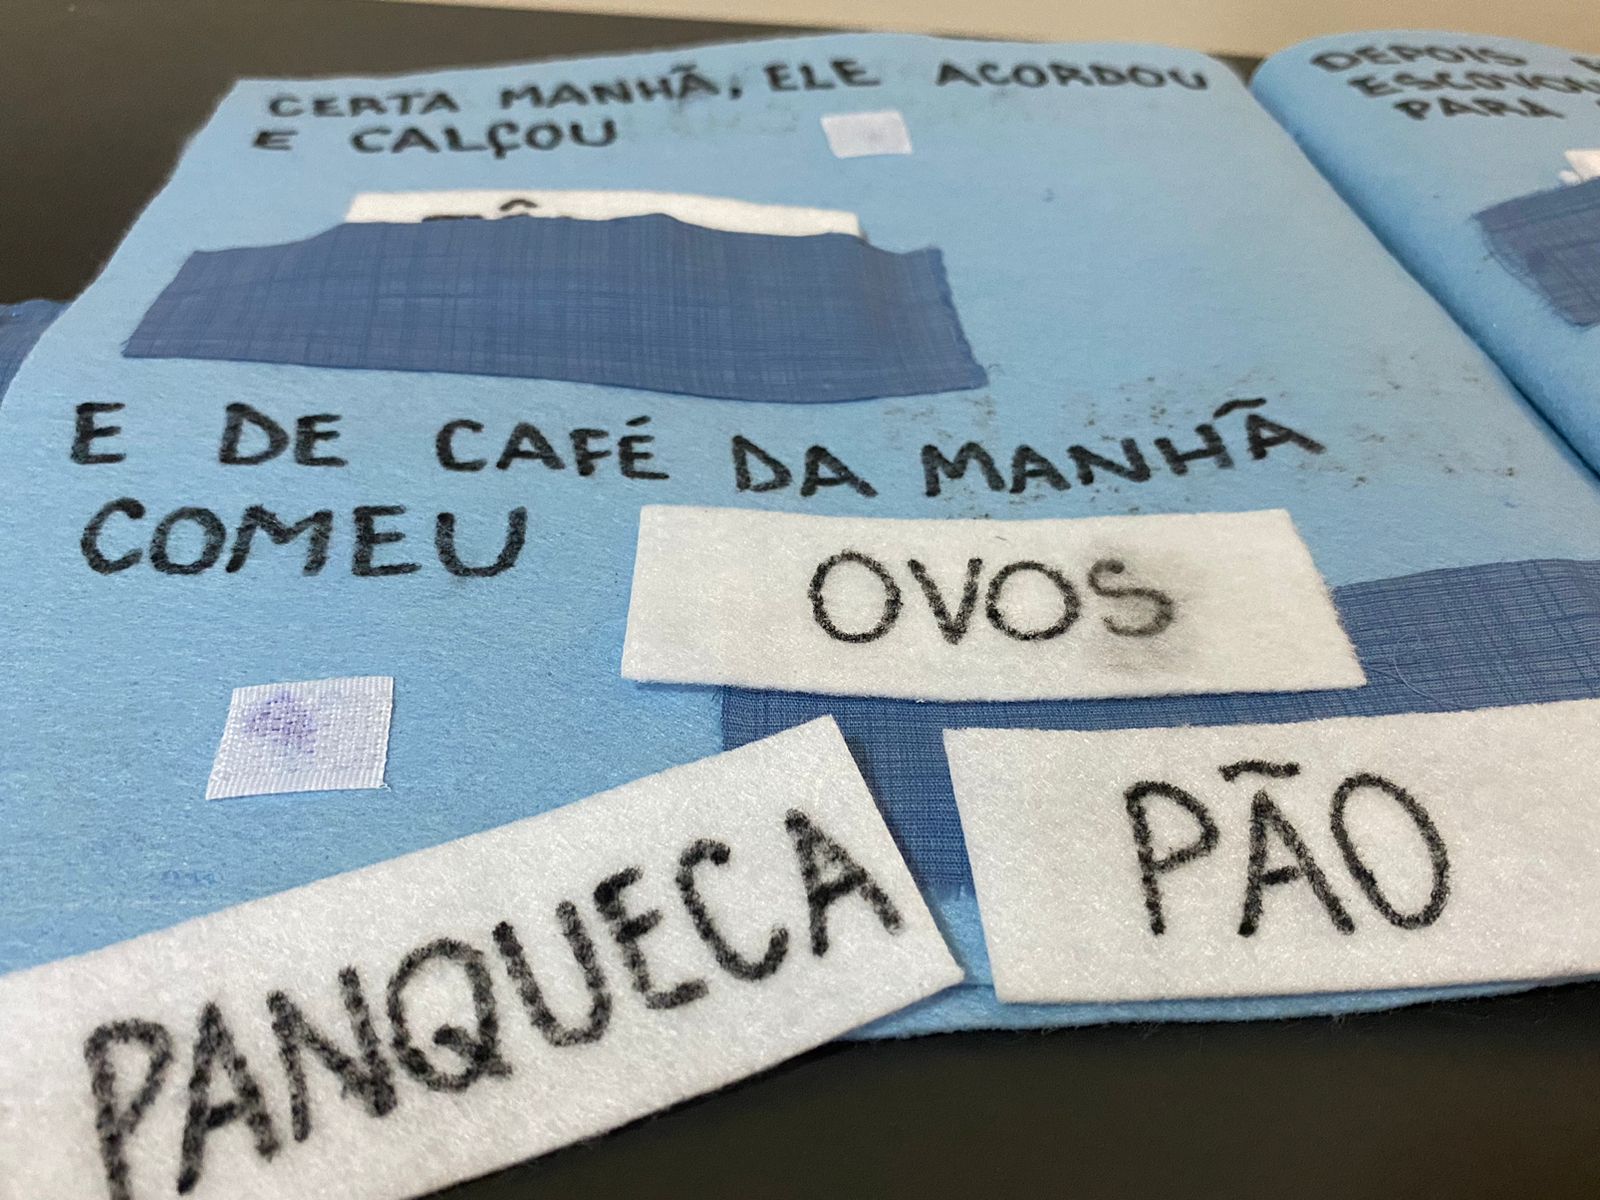 CERTA MANHÃ, ELE ACORDOU
E CALÇOU
E DE CAFÉ DA MANHÃ
COMEU
OVOS
PANQUECA
PÃO
DEPOIS
ESCOVOU
PARA